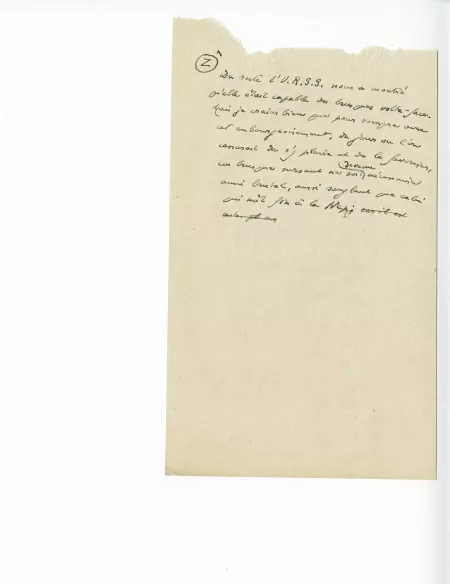 Z
Du reste l'U.R.S.S. nous a montré
qu'elle était capable de brusques volte-face.
Mais je crains bien que pour rompre avec
cet embourgeoisement, du jour où l'on
cesserait de s'y plaire et de le favoriser,
un brusque sursaut ne soit devenu nécessaire
aussi brutal, aussi sanglant que celui
qui mit fin à la Nep;